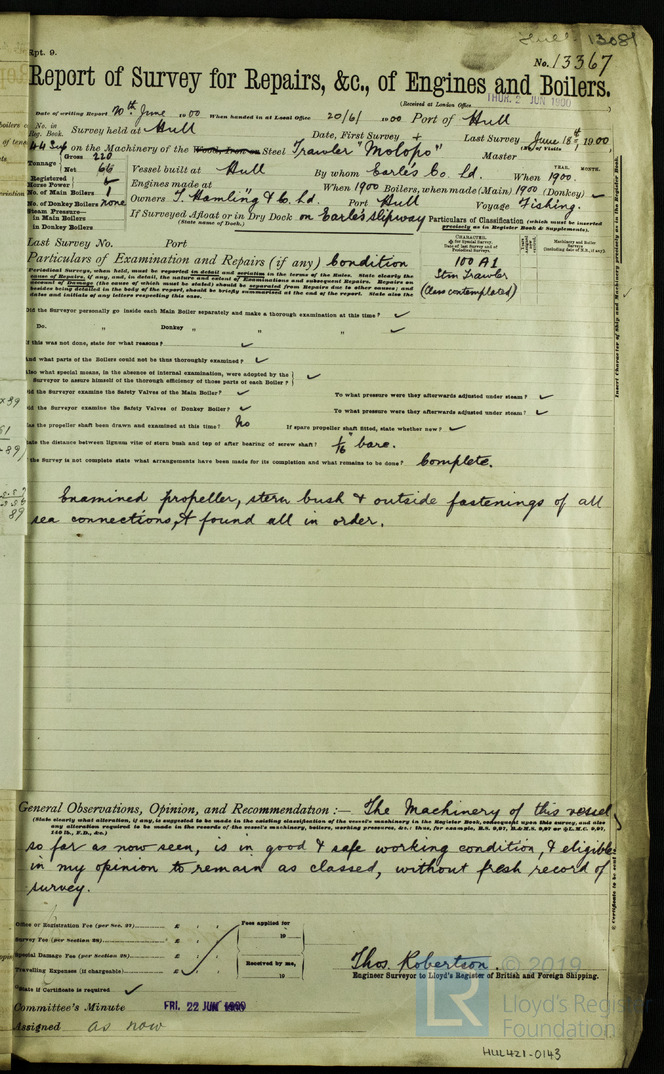 Rpt. 9.
13081
No. 13367
Report of Survey for Repairs, &c., of Engines and Boilers.
(Received at London Office
Date of writing Report 20th June 1900 When handed in at Local Office 20/6/1900 Port of Hull
No. in Reg. Book. Survey held at Hull Date, First Survey Last Survey June 18th 1900
44 Sup on the Machinery of the Wood, Iron or Steel Trawler "Molopo" Master
Tonnage Gross 220
Net 66
Vessel built at Hull By whom Earle's Co. Ld. When 1900.
YEAR. MONTH.
Registered Horse Power
Engines made at When 1900 Boilers, when made (Main) 1900 (Donkey)
No. of Main Boilers 1
Owners T. Hamling & C. Ld. Port Hull Voyage Fishing.
No. of Donkey Boilers none
If Surveyed Afloat or in Dry Dock on Earle's slipway
(State name of Dock.)
Steam Pressure—
in Main Boilers
in Donkey Boilers
Particulars of Classification (which must be inserted precisely as in Register Book & Supplements).
Last Survey No. Port
Particulars of Examination and Repairs (if any) Condition
100 A1
Stm Trawler
(Class contemplated)
Did the Surveyor personally go inside each Main Boiler separately and make a thorough examination at this time? ✓
Do. " Donkey " " " ✓
If this was not done, state for what reasons? ✓
And what parts of the Boilers could not be thus thoroughly examined? ✓
Also what special means, in the absence of internal examination, were adopted by the Surveyor to assure himself of the thorough efficiency of those parts of each Boiler? ✓
Did the Surveyor examine the Safety Valves of the Main Boiler? ✓ To what pressure were they afterwards adjusted under steam? ✓
Did the Surveyor examine the Safety Valves of Donkey Boiler? ✓ To what pressure were they afterwards adjusted under steam? ✓
Has the propeller shaft been drawn and examined at this time? No If spare propeller shaft fitted, state whether new? ✓
State the distance between lignum vitæ of stern bush and top of after bearing of screw shaft? 1/16" bare.
If the Survey is not complete state what arrangements have been made for its completion and what remains to be done? Complete.
Examined propeller, stern bush & outside fastenings of all
sea connections, & found all in order.
General Observations, Opinion, and Recommendation :— The Machinery of this vessel
(State clearly what alteration, if any, is suggested to be made in the existing classification of the vessel's machinery in the Register Book, consequent upon this survey, and also
any alteration required to be made in the records of the vessel's machinery, boilers, working pressures, &c.: thus, for example, B.S. 9,97, B.&M.S. 9,97 or L.M.C. 9,97,
140 lb., F.D., &c.)
so far as now seen, is in good & safe working condition, & eligible
in my opinion to remain as classed, without fresh record of
survey.
Office or Registration Fee (per Sec. 27) £
Survey Fee (per Section 28) £
Special Damage Fee (per Section 28) £
Travelling Expenses (if chargeable) £
Fees applied for
19
Received by me,
19
Thos. Robertson.
Engineer Surveyor to Lloyd's Register of British and Foreign Shipping.
State if Certificate is required ✓
Committee's Minute FRI. 22 JUN 1900
Assigned as now
© 2019
LR
Lloyd's Register
Foundation
HUL421-0143